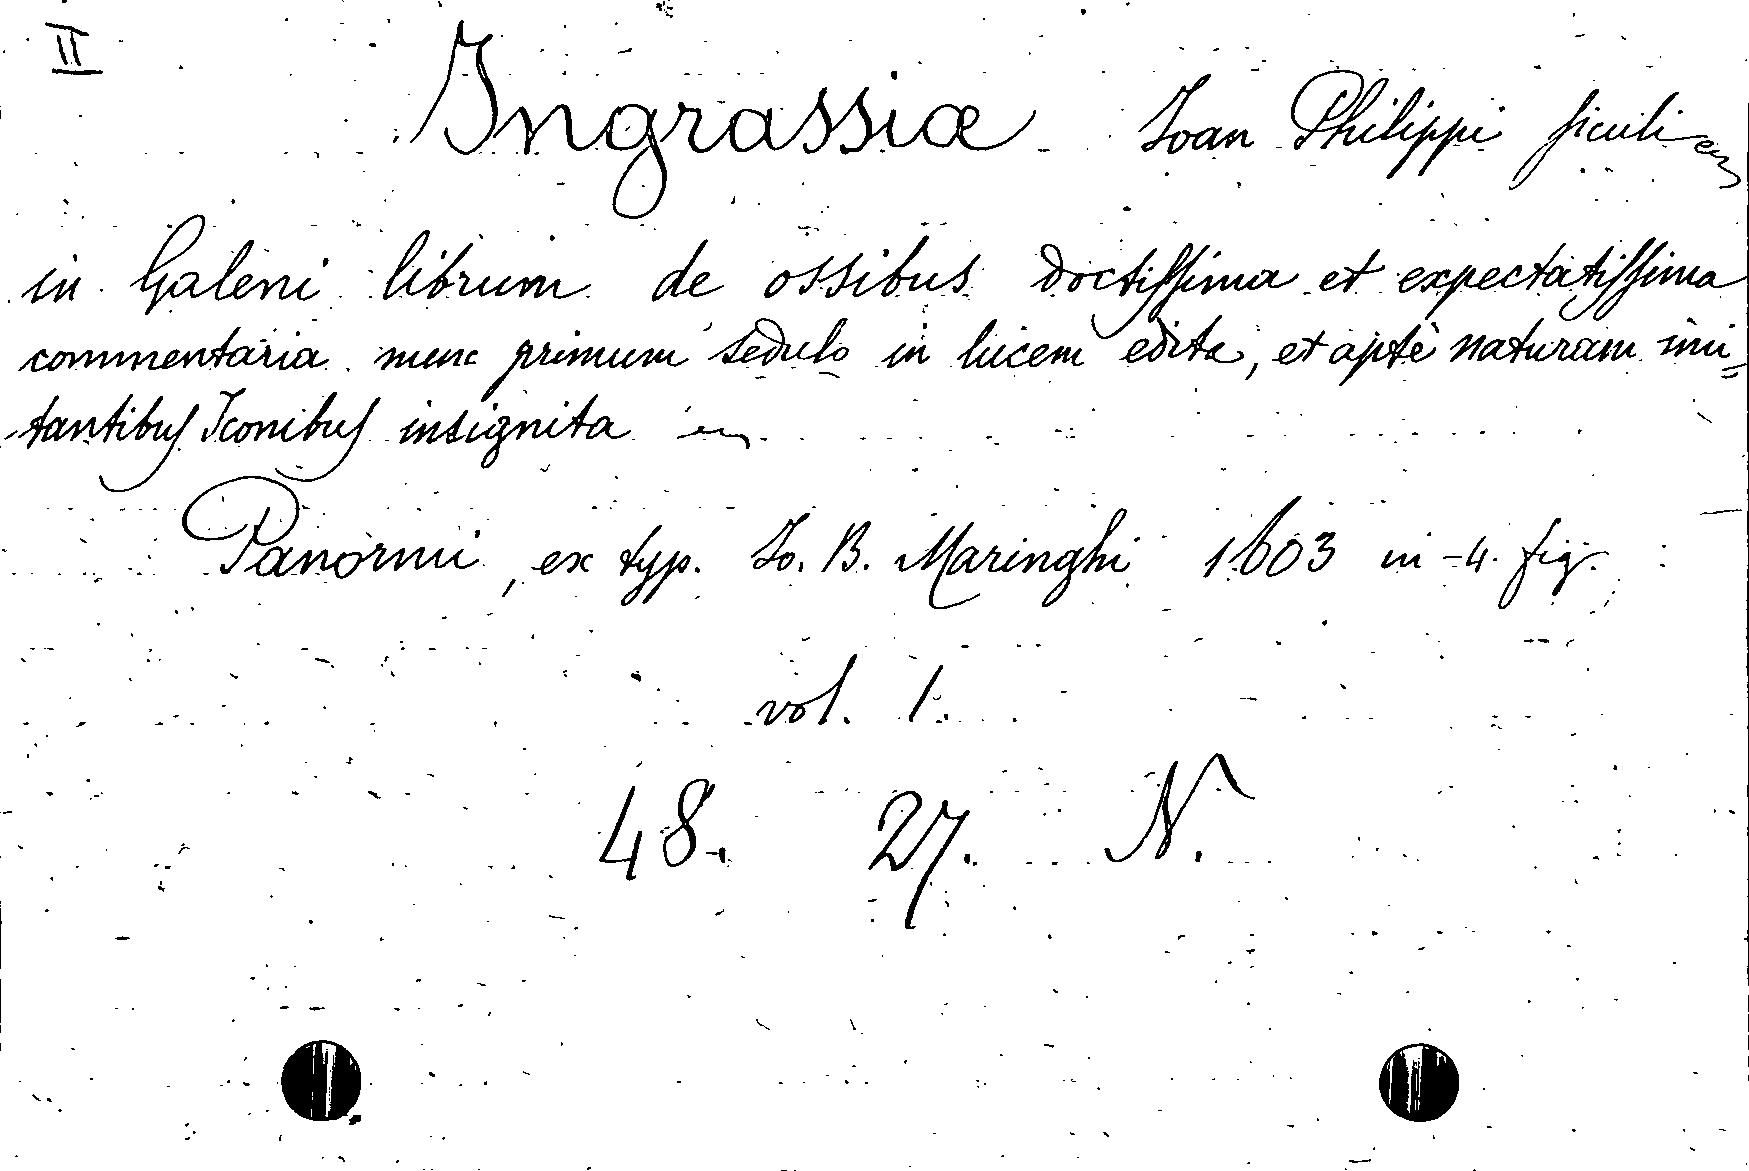 II
Ingrassiæ Joan Philippi ſiculi
in Galeni librum de ossibus doctiſſima et expectatiſſima
commentaria nunc primum sedulo in lucem edita, et aptè naturam imi=
tantibuſ Iconibuſ insignita
Panormi, ex typ. Jo. B. Maringhi 1603 in-4. fig.
vol. 1.
48. 27. N.